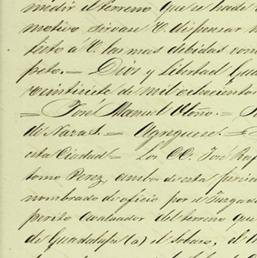 medir el terreno que se trata de
motivo sírvase C. dispensar
to á C. las mas debidas con
peto.= Dios y Libertad Gua
veintisiete de mil ochocientos
= José Manuel Otoño.=
de Nazas.= Agreguese.=
esta Ciudad.= Los CC. José Raf
tomo Perez, ambos de esta
nombrados de oficio por el Juzgado
perito valuador del terreno que
de Guadalupe (a) el Sobaco, el